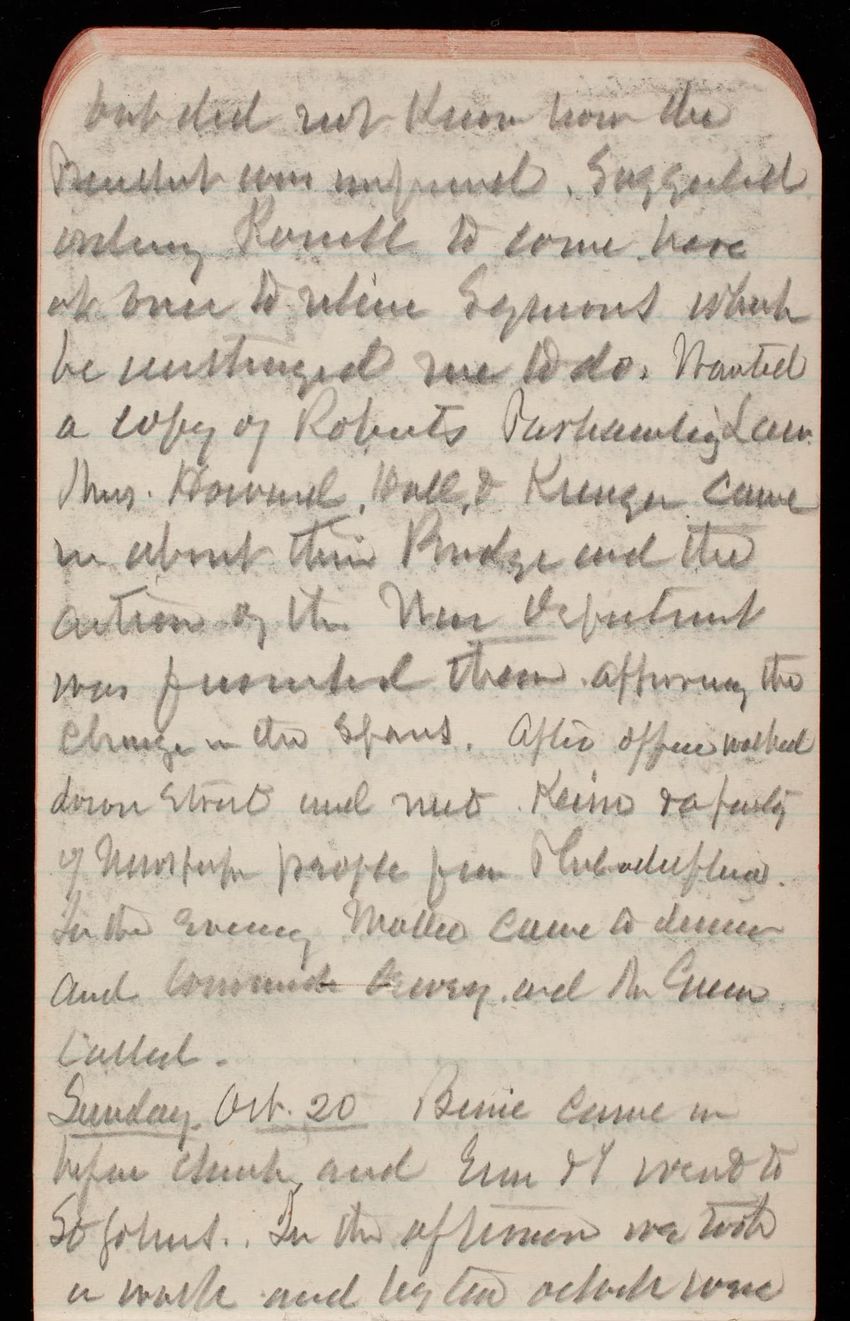 but did not know how the
President was informed. Suggested
ordering Powell to come here
at once to relieve Symons which
he instructed me to do. Wanted
a copy of Roberts Law.
Mrs. Howard, Hall, & Kruger came
in about their Bridge and the
action of the War Department
was presented them approving the
change in the Spans. After office walked
down Street and met Keim & a party
of Newspaper people from Philadelphia.
In the evening came to dinner
and Commander and Mr Green
called.
Sunday. Oct. 20 came in
before church, and & I went to
St Johns. In the afternoon we took
a walk and by two oclock were